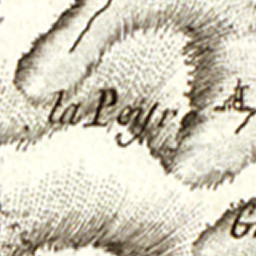 la Peyre